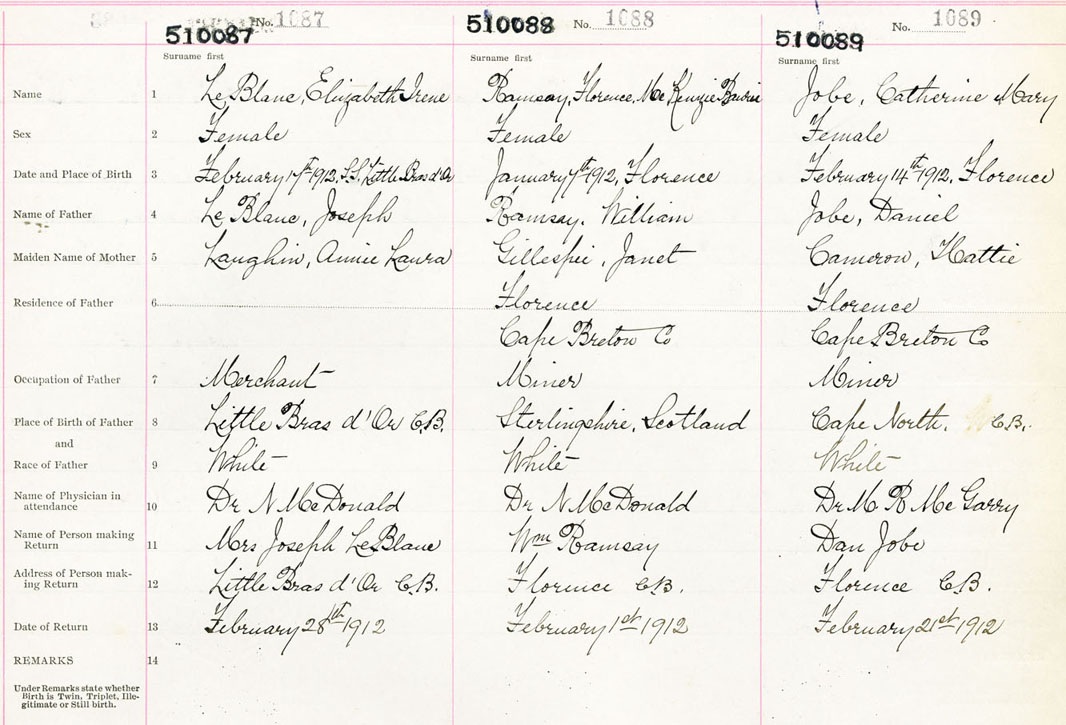 510087 No. 1087 510088 No. 1088 510089 No. 1089
Surname first Surname first Surname first
Name 1 Le Blanc, Elizabeth Irene Ramsay, Florence, Mc Kenzie Jobe, Catherine Mary
Sex 2 Female Female Female
Date and Place of Birth 3 February 17th 1912, Little Bras d'Or January 7th 1912, Florence February 14th 1912, Florence
Name of Father 4 Le Blanc, Joseph Ramsay, William Jobe, Daniel
Maiden Name of Mother 5 Laughin, Annie Laura Gillespie, Janet Cameron, Hattie
Residence of Father 6 Florence Florence
Cape Breton Co Cape Breton Co
Occupation of Father 7 Merchant Miner Miner
Place of Birth of Father 8 Little Bras d'Or C.B. Sterlingshire, Scotland Cape North. C.B.
and
Race of Father 9 White White White
Name of Physician in
attendance 10 Dr N McDonald Dr N McDonald Dr M R Mc Garry
Name of Person making
Return 11 Mrs Joseph LeBlanc Wm Ramsay Dan Jobe
Address of Person mak-
ing Return 12 Little Bras d'Or C.B. Florence C.B. Florence C.B.
Date of Return 13 February 28th 1912 February 1st 1912 February 21st 1912
REMARKS 14
Under Remarks state whether
Birth is Twin, Triplet, Ille-
gitimate or Still birth.